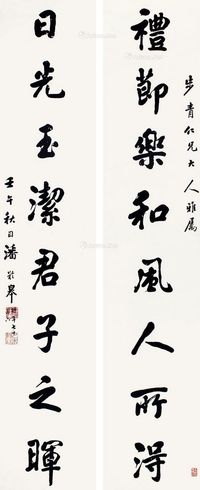 步青仁兄大人雅屬
禮節樂和風人所得
日光玉潔君子之暉
壬午秋日潘齡皋